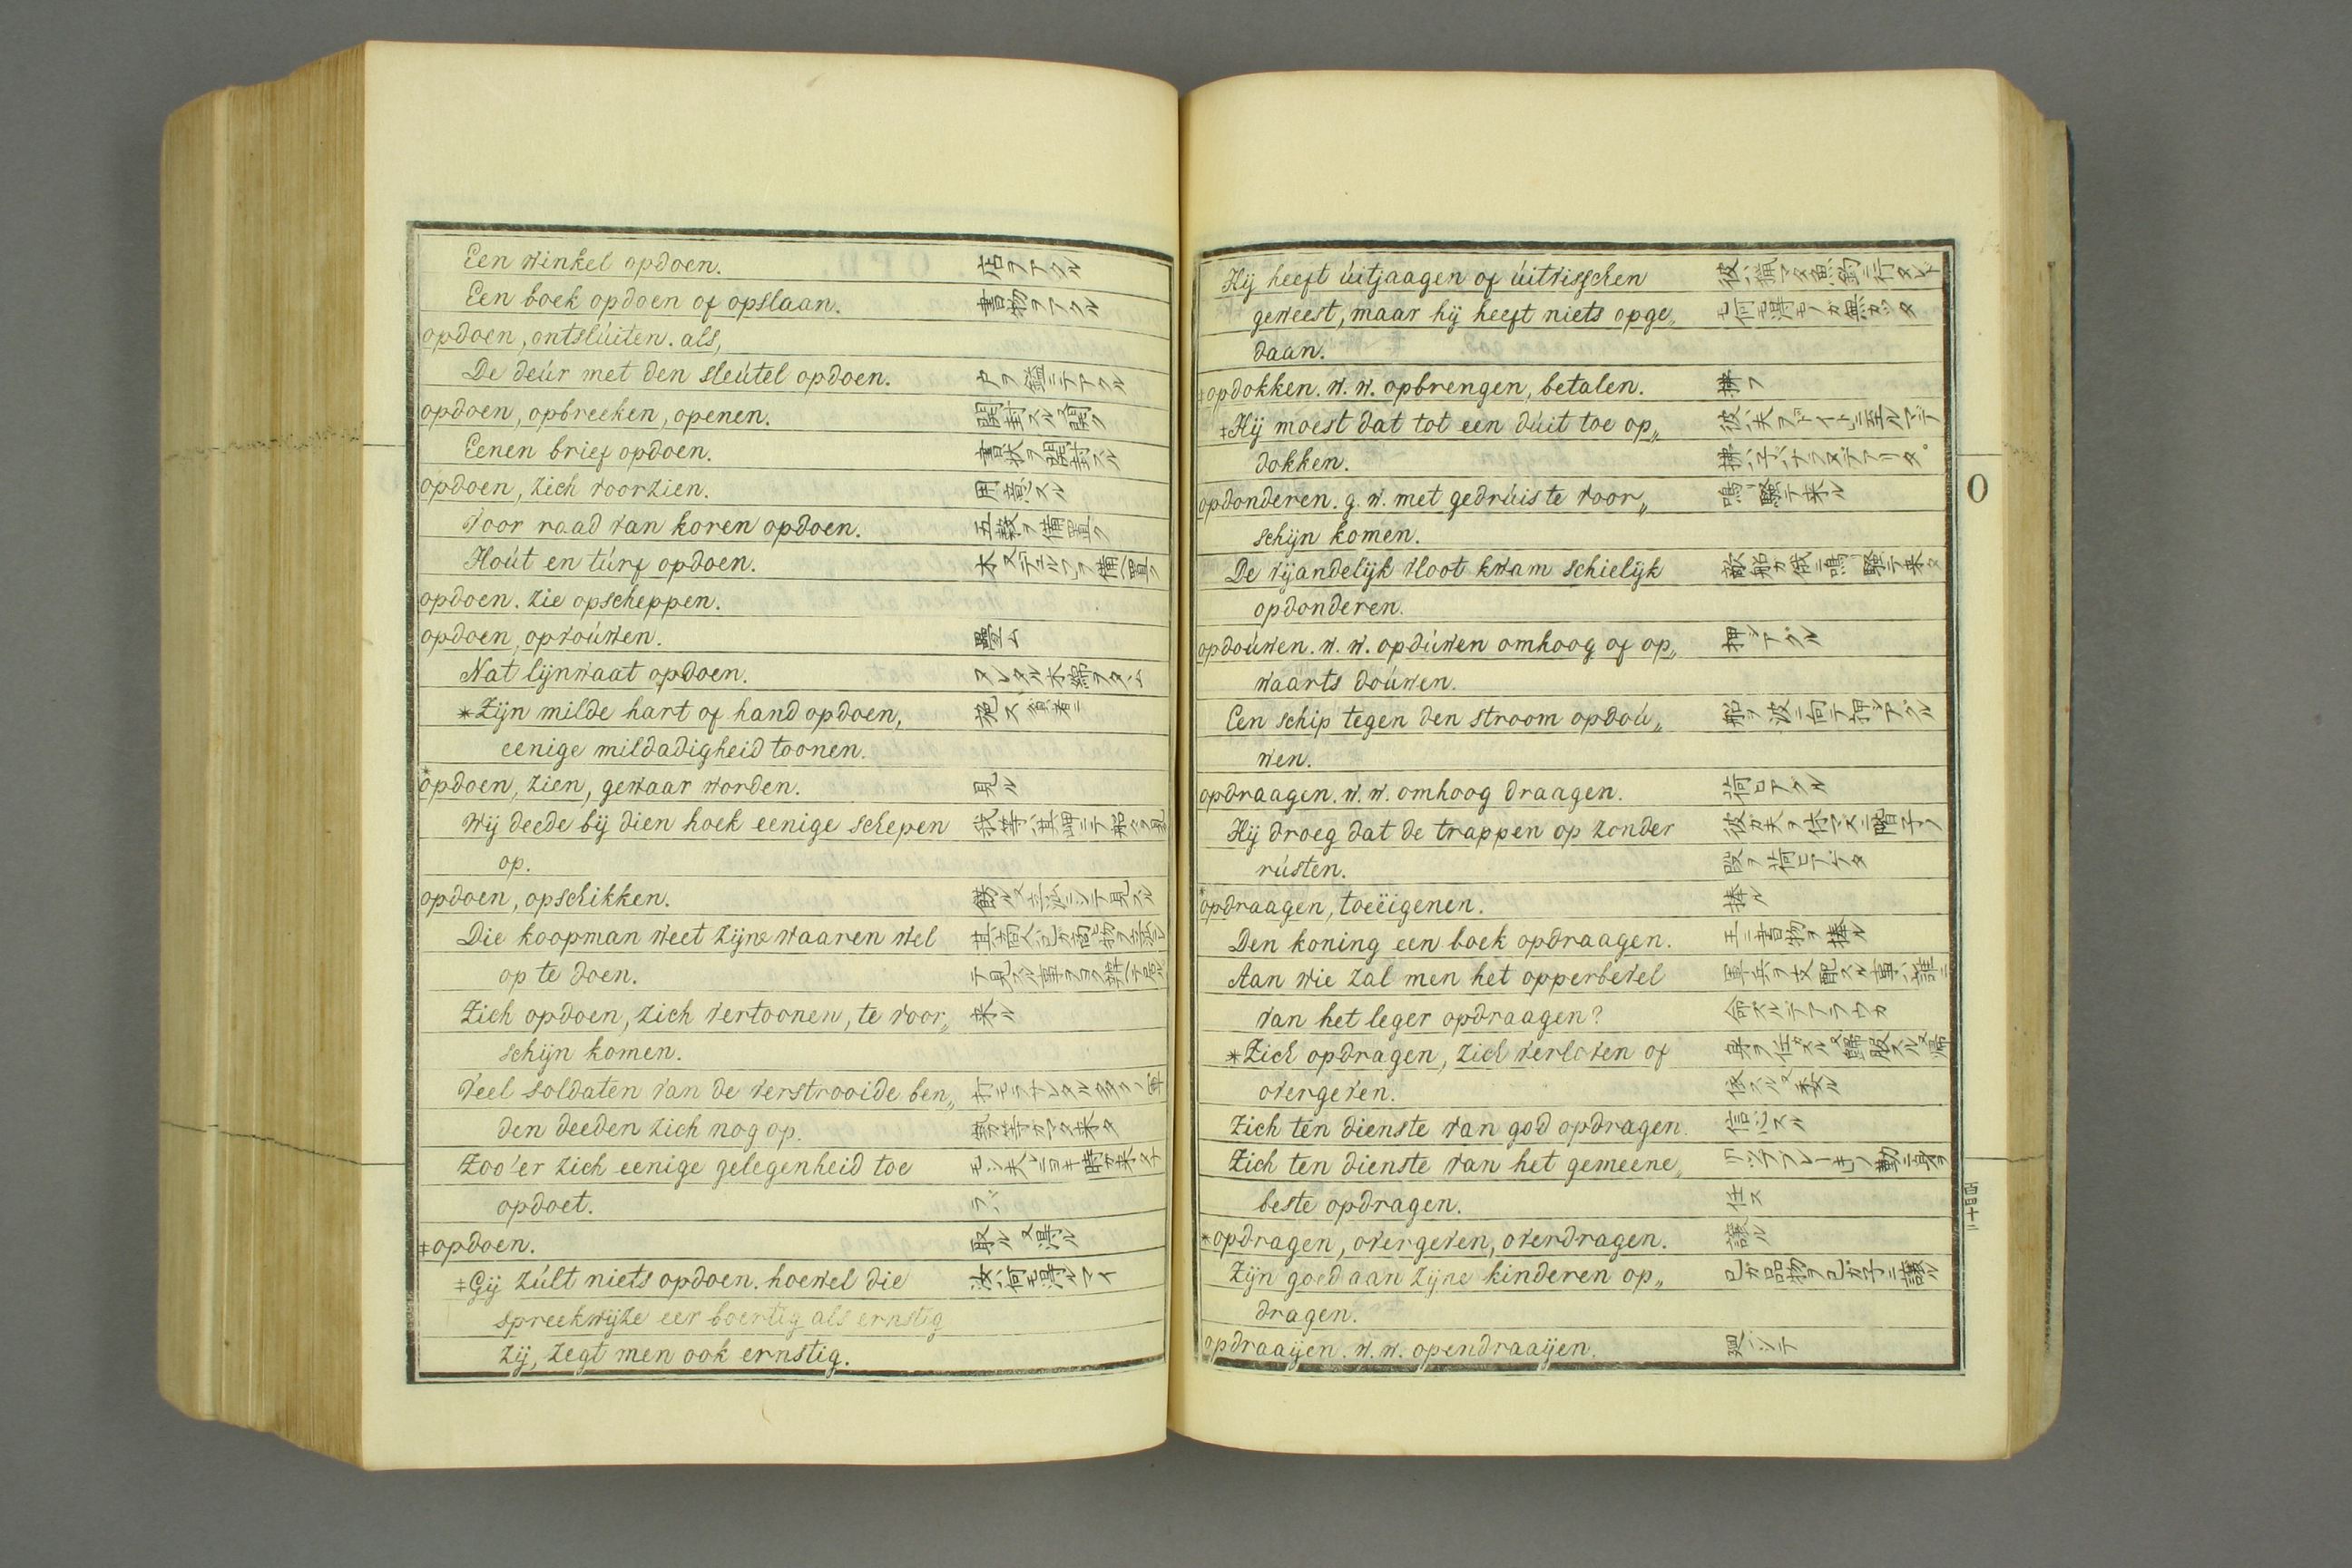 Een winkel opdoen. 店ヲアクル
Een boek opdoen of opslaan. 書物ヲアクル
opdoen, ontslúiten. als,
De deúr met den sleútel opdoen. 戸ヲ鎰ニテアクル
opdoen, opbreeken, openen. 開封スル又開ク
Eenen brief opdoen. 書状ヲ開封スル
opdoen, zich voorzien. 用意スル
Voor raad van koren opdoen. 五穀ヲ備置ク
Hoút en túrf opdoen.
opdoen. zie opscheppen.
opdoen, opvoúwen. 疊ム
Nat lijnwaat opdoen. ヌレタル木綿ヲタヽム
*Zijn milde hart of hand opdoen,
eenige mildadigheid toonen.
*opdoen, zien, gewaar worden. 見ル
Wij deede bij dien hoek eenige schepen
op.
opdoen, opschikken.
Die koopman weet zijne waaren wel
op te doen.
Zich opdoen, zich vertoonen, te voor„ 来ル
schijn komen.
Veel soldaten van de verstrooide ben„
den deeden zich nog op.
Zoo'er zich eenige gelegenheid toe
opdoet.
‡opdoen. 取ル又得ル
‡Gij zúlt niets opdoen. hoewel die 汝ハ何モ得ルマイ
spreekwijze eer boertig als ernstig
zij, zegt men ook ernstig.
Hij heeft úitjaagen of úitvisschen
geweest, maar hij heeft niets opge„
daan.
‡opdokken. w. w. opbrengen, betalen. 拂フ
‡Hij moest dat tot een dúit toe op„
dokken.
opdonderen. g. w. met gedrúis te voor„ 鳴リ騒テ来ル
schijn komen.
De vijandelijk vloot kwam schielijk
opdonderen.
opdoúwen. w. w. opdúwen omhoog of op„ 押シアグル
waarts doúwen.
Een schip tegen den stroom opdoú„ 船ヲ波ニ向テ押シアグル
wen.
opdraagen. w. w. omhoog draagen. 荷ヒアクル
Hij droeg dat de trappen op zonder
rústen.
*opdraagen, toeëigenen. 捧ル
Den koning een boek opdraagen. 王ニ書物ヲ捧ル
Aan wie zal men het opperbevel 軍兵ヲ支配スル事ハ誰ニ
van het leger opdraagen? 命スルデアラウカ
*Zich opdragen, zich verloven of
overgeven.
Zich ten dienste van god opdragen. 信心スル
Zich ten dienste van het gemeene„
beste opdragen. 仕ス
*opdragen, overgeven, overdragen. 讓ル
Zijn goed aan zijne kinderen op„ 己カ品物ヲ己カ子ニ讓ル
dragen.
opdraaijen. w. w. opendraaijen.
O
百四十二